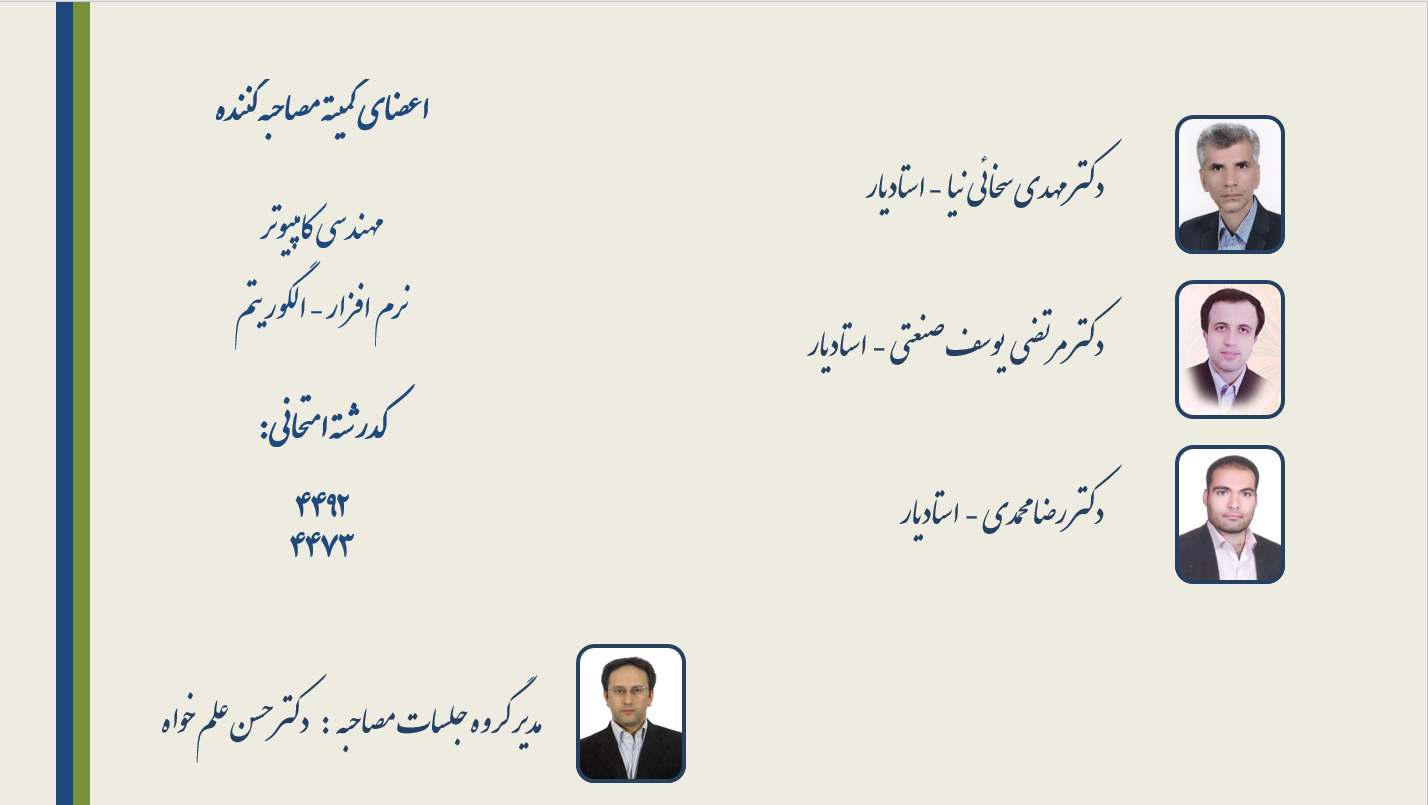 اعضای کمیتهٔ مصاحبه کننده
مهندسی کامپیوتر
نرم افزار - الگوریتم
کدرشتهٔ امتحانی:
۴۴۹۲
۴۴۷۳
دکتر مهدی سخائی نیا - استادیار
دکتر مرتضی یوسف صنعتی - استادیار
دکتر رضا محمدی - استادیار
مدیر گروه جلسات مصاحبه : دکتر حسن علم خواه